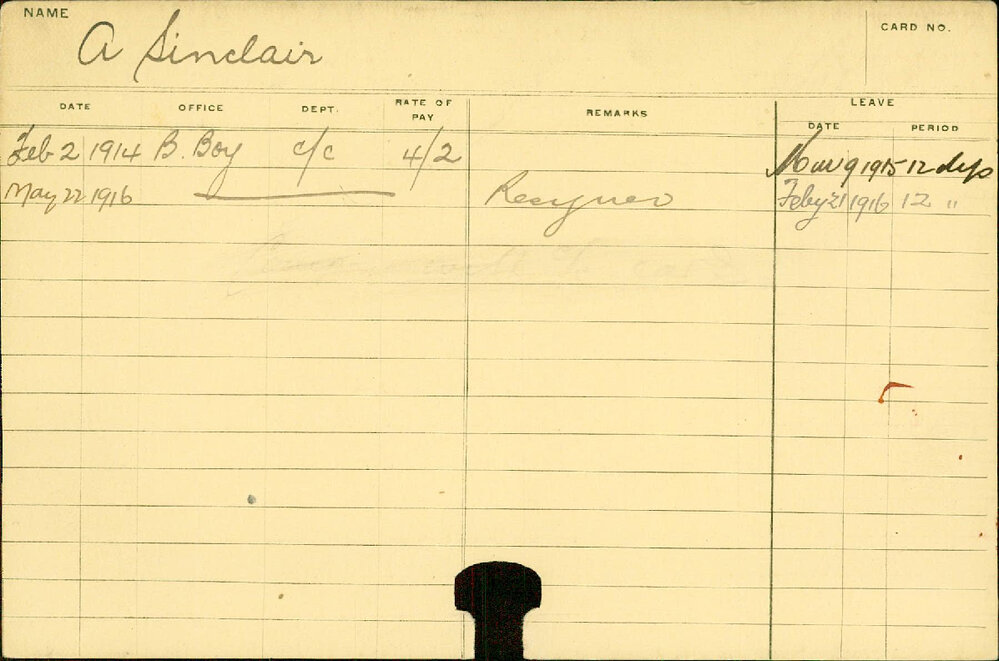 NAME
A Sinclair
CARD NO.
DATE OFFICE DEPT. RATE OF PAY REMARKS LEAVE
DATE PERIOD
Feb 2 1914 B. Boy c/c 4/2 Mar 9 1915 12 days
May 22 1916 Resigned Feby 21 1916 12 "